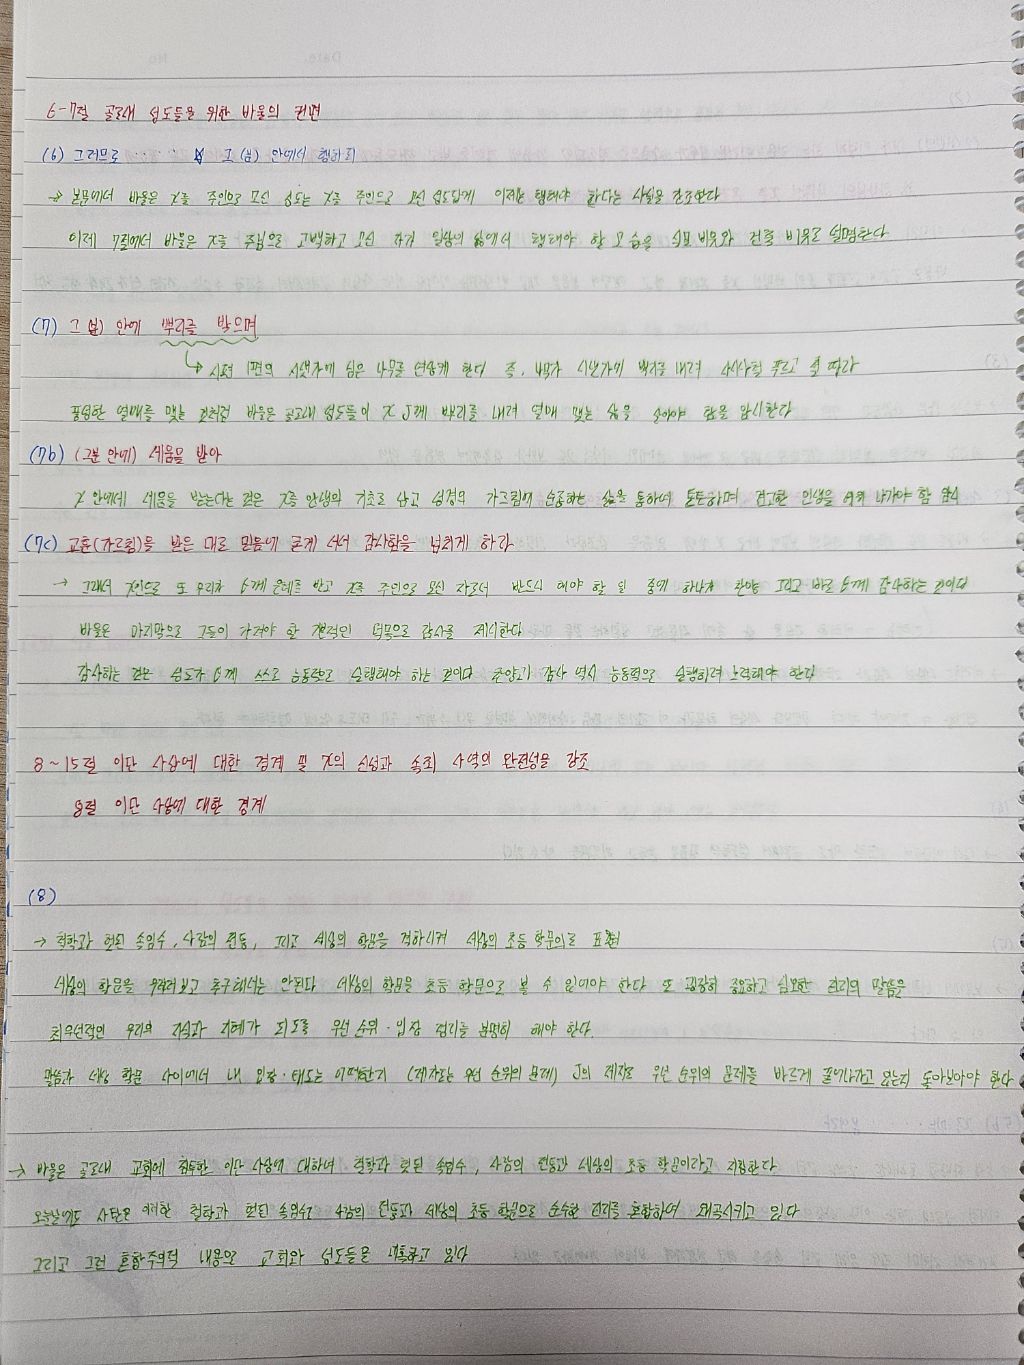 6-7절 골로새 성도들을 위한 바울의 권면
(6) 그러므로 ········ ☆ 그(분) 안에서 행하되
→ 본문에서 바울은 X를 주인으로 모신 성도는 X를 주인으로 모신 성도답게 이제는 행해야 한다는 사실을 강조한다
이제 7절에서 바울은 X를 주님으로 고백하고 모신 자가 일상의 삶에서 행해야 할 모습을 식물 비유와 건축 비유로 설명한다
(7) 그(분) 안에 뿌리를 박으며
↳ 시편 1편의 시냇가에 심은 나무를 연상케 한다 즉, 나무가 시냇가에 뿌리를 내려 사시사철 푸르고 철 따라
풍성한 열매를 맺는 것처럼 바울은 골로새 성도들이 X J께 뿌리를 내려 열매 맺는 삶을 살아야 함을 암시한다
(7b) (그분 안에) 세움을 받아
X 안에서 세움을 받는다는 것은 X를 인생의 기초로 삼고 성경의 가르침에 순종하는 삶을 통하여 튼튼하며 견고한 인생을 세워 나가야 함 암시
(7c) 교훈(가르침)을 받은 대로 믿음에 굳게 서서 감사함을 넘치게 하라
→ 그래서 X인으로 또 우리가 G께 은혜를 받고 X를 주인으로 모신 자로서 반드시 해야 할 일 중에 하나가 찬양 그리고 바로 G께 감사하는 것이다
바울은 마지막으로 그들이 가져야 할 전적인 덕목으로 감사를 제시한다
감사하는 것은 성도가 G께 스스로 능동적으로 실행해야 하는 것이다 찬양과 감사 역시 능동적으로 실행하려 노력해야 한다
8~15절 이단 사상에 대한 경계 및 X의 신성과 속죄 사역의 완전성을 강조
8절 이단 사상에 대한 경계
(8)
→ 철학과 헛된 속임수, 사람의 전통, 그리고 세상의 학문을 격하시켜 세상의 초등 학문으로 표현됨
세상의 학문을 우러러보고 추구해서는 안된다 세상의 학문을 초등 학문으로 볼 수 있어야 한다 또 굉장히 중요하고 심오한 진리의 말씀을
최우선적인 우리의 지식과 지혜가 되도록 우선 순위·입장 정리를 분명히 해야 한다.
말씀과 세상 학문 사이에서 내 입장·태도는 어떠한지 (제자도는 우선 순위의 문제) J의 제자로 우선 순위의 문제를 바르게 풀어나가고 있는지 돌아보아야 한다
→ 바울은 골로새 교회에 침투한 이단 사상에 대하여 철학과 헛된 속임수, 사람의 전통과 세상의 초등 학문이라고 지칭한다
오늘날에도 사탄은 이러한 철학과 헛된 속임수로 사람의 전통과 세상의 초등 학문으로 순수한 진리를 혼합하여 왜곡시키고 있다
그리고 그런 혼합주의적 내용으로 교회와 성도들을 미혹하고 있다